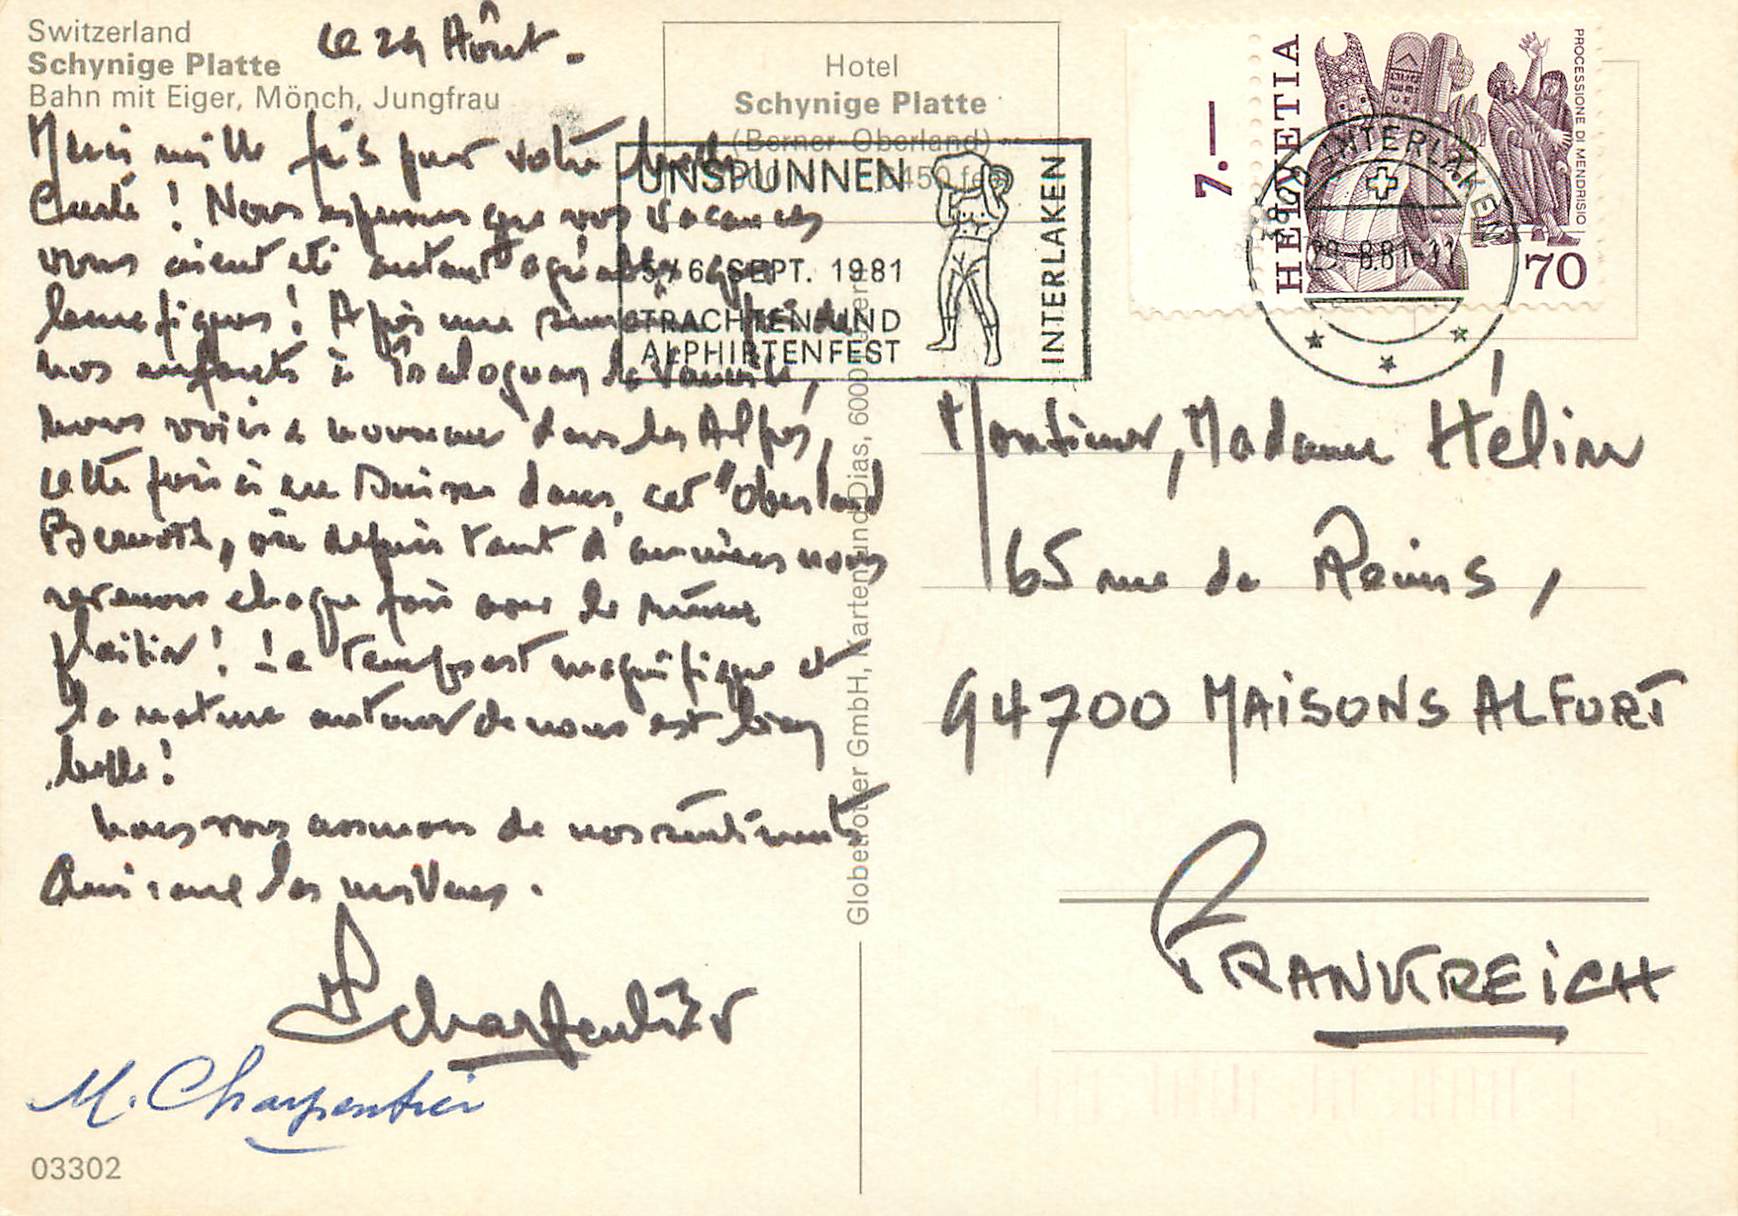 Switzerland
Schynige Platte
Bahn mit Eiger, Mönch, Jungfrau
Le 29 Août.
Merci mille fois pour votre belle
Carte ! Nous espérons que vos vacances
vous aient été autant agréables que
benefiques ! Après une semaine près de
nos enfants à la Vanoise,
nous voici à nouveau dans les Alpes,
cette fois ci en Suisse dans cet "Oberland
Bernois", où depuis tant d'années nous
revenons chaque fois avec le même
plaisir ! Le temps est magnifique et
la nature autour de nous est bien
belle !
Nous vous assurons de nos sentiments
Amicaux les meilleurs.
Charpentier
M. Charpentier
03302
Hotel
Schynige Platte
(Berner Oberland)
UNSPUNNEN
5/6. SEPT. 1981
TRACHTEN UND
ALPHIRTENFEST
INTERLAKEN
7.—
HELVETIA
PROCESSIONE DI MENDRISIO
70
3800 INTERLAKEN
29.8.81-11
Globetrotter GmbH, Karten und Dias, 6000 Luzern
Monsieur, Madame Hélin
65 rue de Reims,
94700 MAISONS ALFORT
FRANKREICH